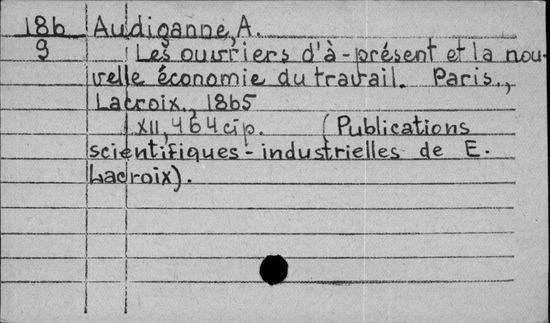 186 Audiganne, A.
9 Les ouvriers d'à-présent et la nou-
velle économie du travail. Paris.,
Lacroix., 1865
XII, 464 cip. (Publications
scientifiques-industrielles de E.
Lacroix).